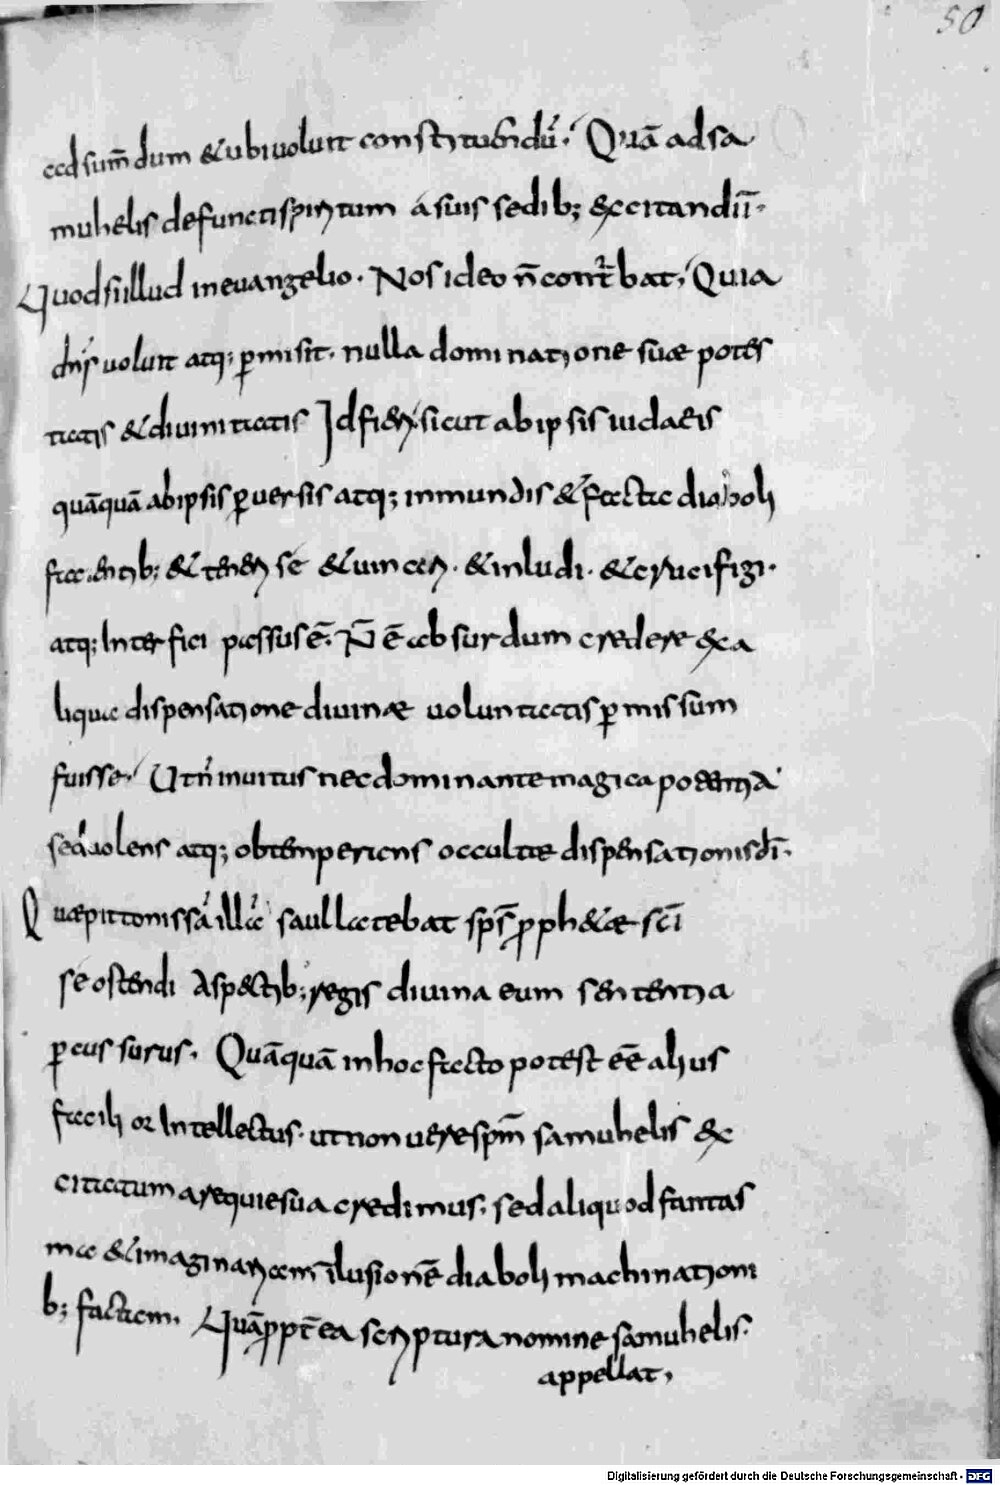 50
ad sum̄dum & ubi uoluit constituendū; Quā ad sa
muhelis defuncti sp̄ritum a suis sedib; excitandū.
Quod si illud in euangelio. Nos ideo n̄ cont̄bat, Quia
dn̄s uoluit atq; p̄misit. nulla dominatione suae potes
tatis & diuinitatis Id fieri. sicut ab ipsis iudaeis
quāquā ab ipsis p̄uersis atq; inmundis & facta diaboli
facientib; & teneri se & uinceri. & inludi. & crucifigi.
atq; Interfici passus ē. N̄ ē absurdum credere exa
liqua dispensatione diuinae uoluntatis p̄missum
fuisse. Ut n̄ inuitus nec dominante magica potentia
sed uolens atq; obtemperans occultae dispensationis dī.
Quae pittonissā illā saul latebat sp̄s p̄ph&ae scī
se ostendi Aspectib; regis diuina eum sententia
p̄cussurus. Quāquā in hoc facto potest eē alius
facilior Intellectus. ut non uere sp̄m samuhelis ex
citatum a requie sua credimus. sed aliquod fantas
ma & imaginariam ilusionē diaboli machinationi
b; factam. Quāp̄pt̄ea scriptura nomine samuhelis.
appellat,
Digitalisierung gefördert durch die Deutsche Forschungsgemeinschaft - DFG